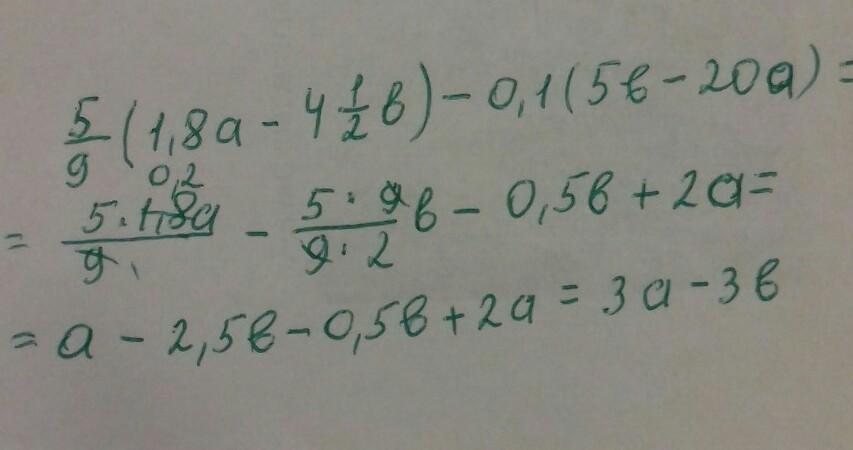 5/9 (1,8a - 4 1/2 в) - 0,1(5в - 20a) =
0,2
= 5·1,8a/9· - 5·9/9·2 в - 0,5в + 2a =
= a - 2,5в - 0,5в + 2a = 3a - 3в